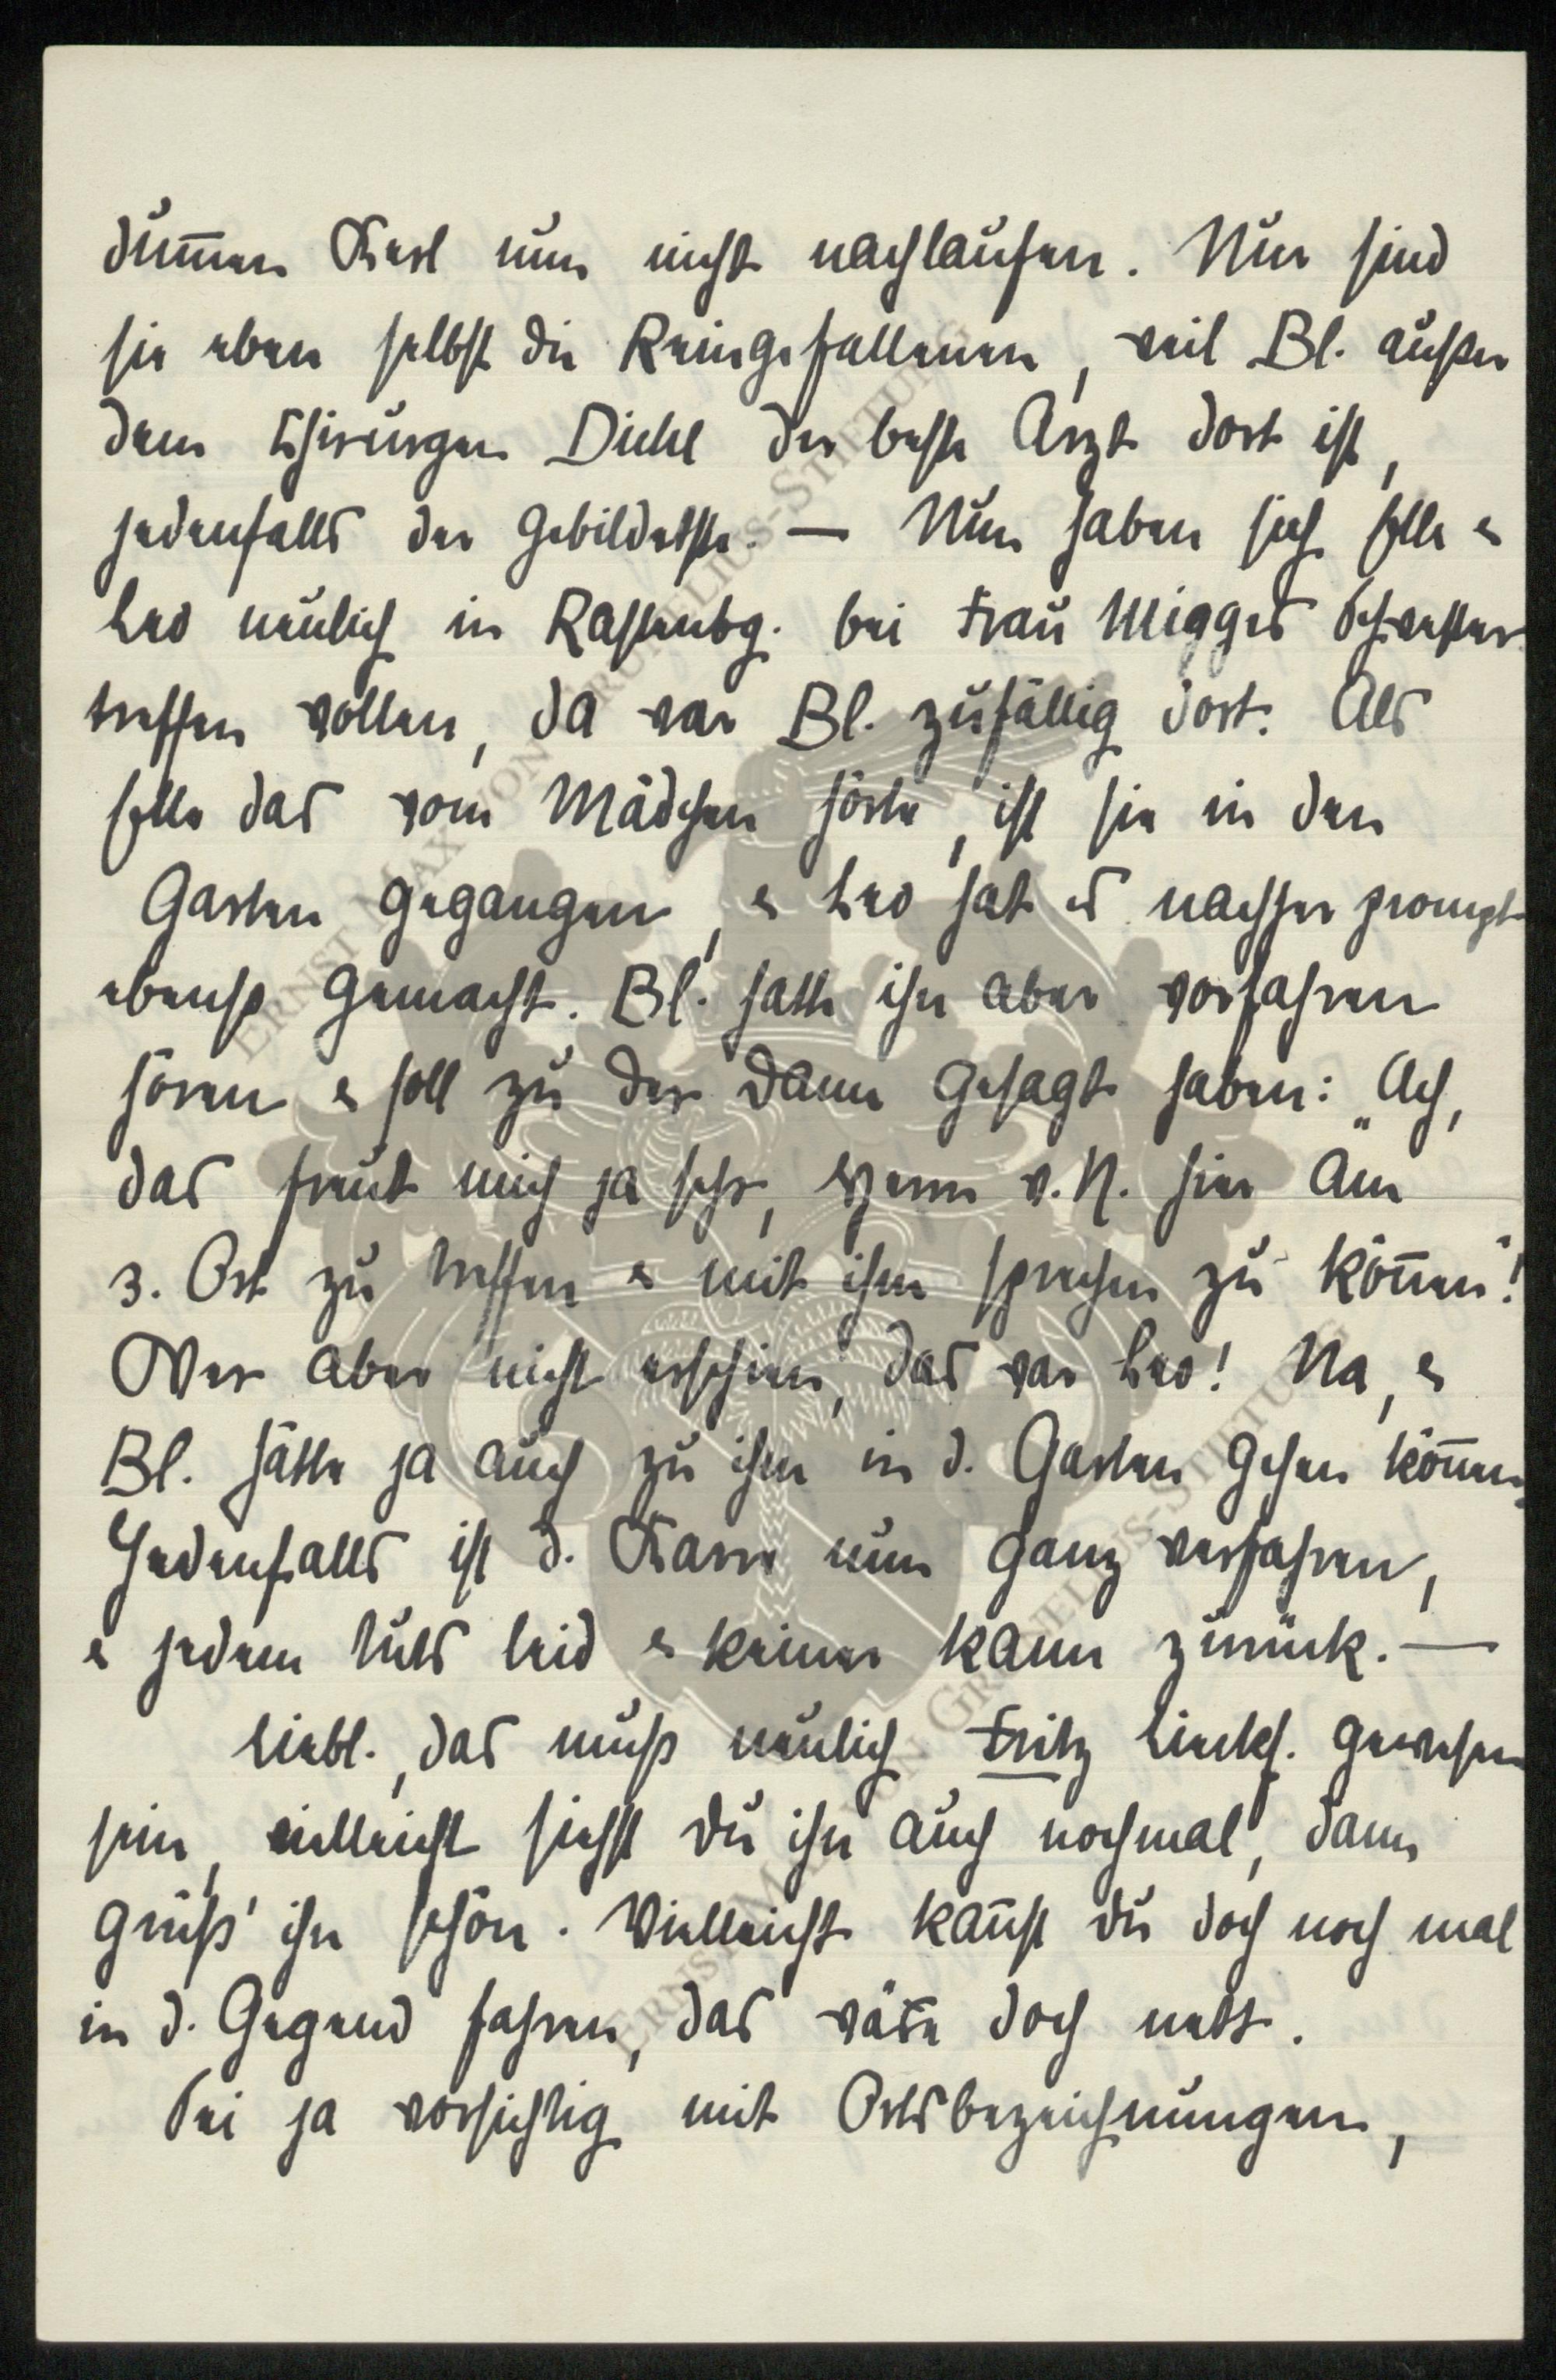 dum̄en Kerl nun nicht nachlaufen. Nun sind
sie eben selbst die Reingefallenen, weil Bl. außer
dem Chirurgen Diehl der beste Arzt dort ist,
jedenfalls der Gebildetste. — Nun haben sich Elle u
Leo neulich in Rastenbg. bei Frau Migges Schwester
treffen wollen, da war Bl. zufällig dort. Als
Elle das vom Mädchen hörte, ist sie in den
Garten gegangen, u Leo hat es nachher prompt
ebenso gemacht. Bl. hatte ihn aber vorfahren
hören u soll zu der Dame gesagt haben: „Ach,
das freut mich ja sehr, Herrn v. N. hier am
3. Ort zu treffen u mit ihm sprechen zu kön̄en"!
Wer aber nicht erschien, das war Leo! Na, u
Bl. hätte ja auch zu ihm in d. Garten gehen kön̄en,
Jedenfalls ist d. Karre nun ganz verfahren,
u jedem tuts leid u keiner kann zurück. —
Liebl., das muß neulich Fritz gewesen
sein, vielleicht siehst Du ihn auch nochmal, dann
grüß' ihn schön. Vielleicht kan̄st Du doch noch mal
in d. Gegend fahren, das wäre doch nett.
Sei ja vorsichtig mit Ortsbezeichnungen,
ERNST MAX VON GRUNELIUS-STIFTUNG
ERNST MAX VON GRUNELIUS-STIFTUNG